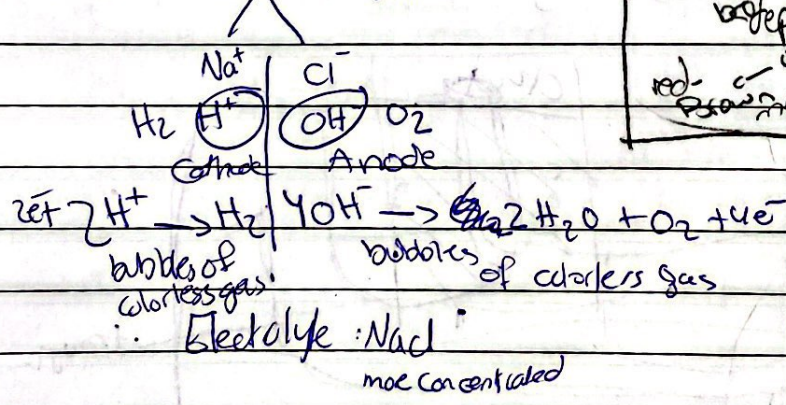 Na⁺ Cl⁻
H₂ H⁺ OH⁻ O₂
Cathode Anode
2e⁻+ 2H⁺ → H₂ 4OH⁻ → 2H₂O + O₂ + 4e⁻
bubbles of colorless gas.
bubbles of colorless gas
∴ Electolyte : Nacl
moe concentrated
red-